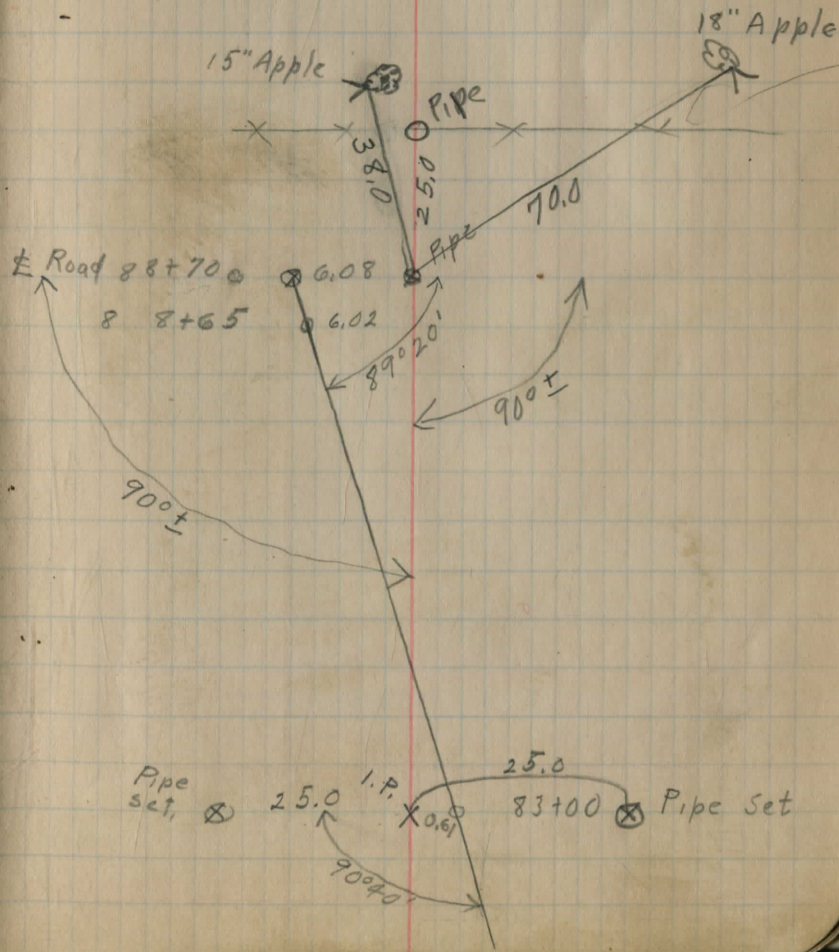 18" Apple
15" Apple
Pipe
38.0
25.0
70.0
Pipe
℄ Road 88+70 6.08
88+65 6.02
89°20'
90°±
90°±
25.0
Pipe set, 25.0 I.P. 0.61 83+00 Pipe set
90°40'